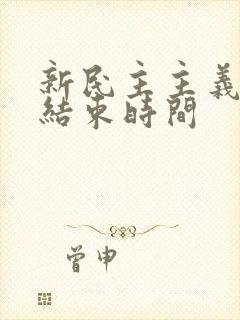 新民主主義
結束時間
曾申